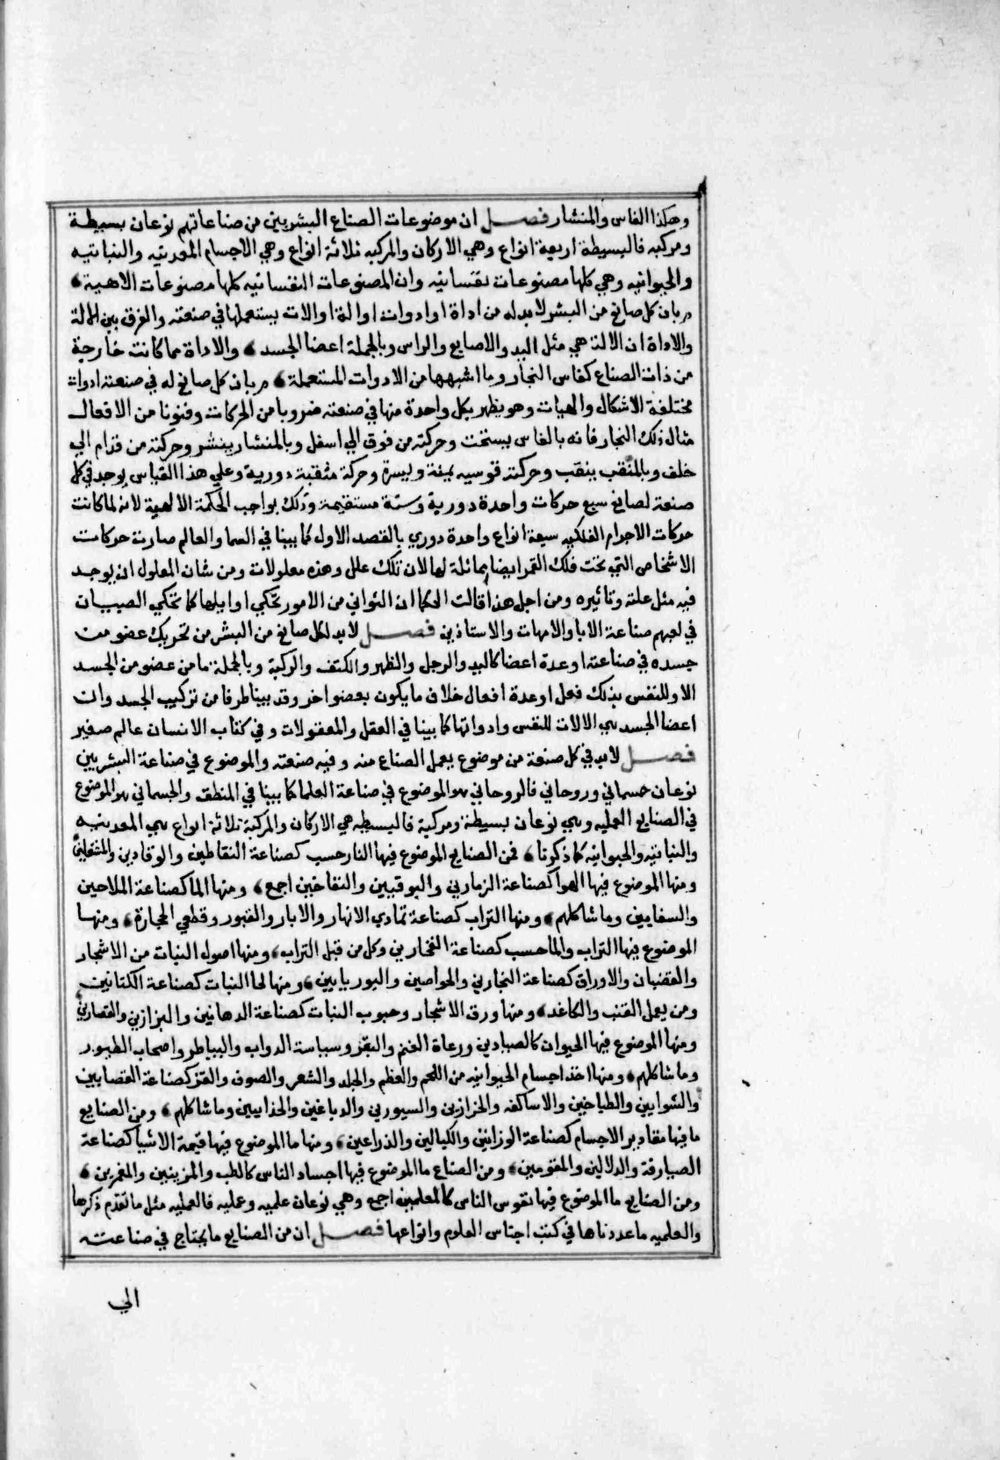 وهكذا الفاس والمنشار فصل ان موضوعات الصناع البشريين من صناعاتهم نوعان بسيطة
ومركبه فالبسيطة اربعة انواع وهي الاركان والمركبه ثلاثة انواع وهي الاجسام المعدنيه والنباتيه
والحيوانيه وهي كلها مصنوعات نفسانيه وان المصنوعات النفسانيه كلها مصنوعات الاهية
بان كل صانع من البشر لابد له من اداة او ادوات او الة او الات يستعملها في صنعته والفرق بين الالة
والاداة ان الالة هي مثل اليد والاصابع والراس وبالجملة اعضا الجسد والاداة مما كانت خارجة
من ذات الصناع كفاس النجار وما اشبهها من الادوات المستعملة بان كل صانع له في صنعته ادوات
مختلفة الاشكال والهيات وهو يظهر بكل واحدة منها في صنعته ضروبا من الحركات وفنونا من الافعال
مثال ذلك النجار فانه بالفاس ينحت وحركته من فوق الي اسفل وبالمنشار ينشر وحركته من قدام الي
خلف وبالمثقب يثقب وحركته قوسيه يمنة ويسرة وحركة مثقبة دورية وعلي هذا القياس يوجد في كل
صنعة لصانع سبع حركات واحدة دورية وستة مستقيمة وذلك بواجب الحكمة الالهية لانه لما كانت
حركات الاجرام الفلكيه سبعة انواع واحدة دوري بالقصد الاول كما بينا في السما والعالم صارت حركات
الاشخاص التي تحت فلك القمر ايضا مماثلة لها لان تلك علل وهذه معلولات ومن شان المعلول ان يوجد
فيه مثل علته وتاثيره ومن اجل هذا قالت الحكما ان الثواني من الامور تحكي اوايلها كما تحكي الصبيان
في لعبهم صناعة الابا والامهات والاستاذين فصل لابد لكل صانع من البشر من تحريك عضو من
جسده في صناعته او عدة اعضا كاليد والرجل والظهر والكتف والركبة وبالجملة ما من عضو من الجسد
الا وللنفس بذلك فعل او عدة افعال خلاف ما يكون بعضو اخر وقد بينا طرفا من تركيب الجسد وان
اعضا الجسد هي الالات للنفس وادواتها كما بينا في العقل والمعقولات وفي كتاب الانسان عالم صغير
فصل لابد في كل صنعة من موضوع يعمل الصناع منه وفيه صنعته والموضوع في صناعة البشريين
نوعان جسماني وروحاني فالروحاني هو الموضوع في صناعة العلما كما بينا في المنطق والجسماني هو الموضوع
في الصنايع العمليه وهي نوعان بسيطة ومركبة فالبسيطه هي الاركان والمركبة ثلاثة انواع هي المعدنيه
والنباتيه والحيوانيه كما ذكرنا فمن الصنايع الموضوع فيها النار حسب كصناعة النفاطين والوقادين والمشعلين
ومنها الموضوع فيها الهوا كصناعة الزمارين والبوقيين والنفاخين اجمع ومنها الما كصناعة الملاحين
والسقايين وما شاكلهم ومنها التراب كصناعة تمادي الانهار والابار والقبور وقطعي الحجارة ومنها
الموضوع فيها التراب والما حسب كصناعة الفخارين وكل من قبل التراب ومنها اصول النبات من الاشجار
والقضبان والاوراق كصناعة النجارين والخواصين والبوريايين ومنها لحا النبات كصناعة الكتانين
ومن يعمل القنب والكاغد ومنها ورق الاشجار وحبوب النبات كصناعة الدهانين والبزازين والعصارين
ومنها الموضوع فيها الحيوان كالصيادين ورعاة الغنم والبقر وسياسة الدواب والبياطر واصحاب الطيور
وما شاكلهم ومنها اخذ اجسام الحيوانيه من اللحم والعظم والجلد والشعر والصوف والقز كصناعة القصابين
والشوايين والطباخين والاساكفه والخرازين والسيورين والدباغين والحذايين وما شاكلهم ومن الصنايع
ما فيها مقادير الاجسام كصناعة الوزانين والكيالين والذراعين ومنها ما الموضوع فيها قيمة الاشيا كصناعة
الصيارفة والدلالين والمقومين ومن الصناع ما الموضوع فيها اجساد الناس كالطب والمزينين والمغمزين
ومن الصنايع ما الموضوع فيها نفوس الناس كالمعلمين اجمع وهي نوعان علميه وعمليه فالعمليه مثل ما تقدم ذكرها
والعلميه ما عددناها في كتب اجناس العلوم وانواعها فصل ان من الصنايع ما يحتاج في صناعته
الي